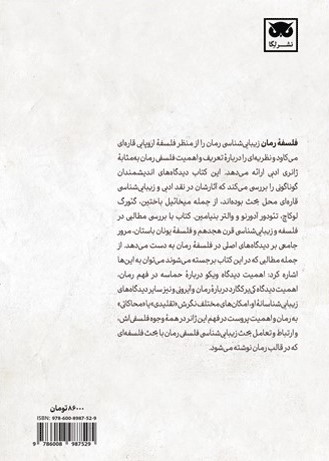 نشر لِگا
فلسفهٔ رمان زیبایی‌شناسی رمان را از منظر فلسفهٔ اروپایی قاره‌ای
می‌کاود و نظریه‌ای را دربارهٔ تعریف و اهمیت فلسفی رمان به‌مثابهٔ
ژانری ادبی ارائه می‌دهد. این کتاب دیدگاه‌های اندیشمندان
گوناگونی را بررسی می‌کند که آثارشان در نقد ادبی و زیبایی‌شناسی
قاره‌ای محل بحث بوده‌اند، از جمله میخائیل باختین، گئورگ
لوکاچ، تئودور آدورنو و والتر بنیامین. کتاب با بررسی مطالبی در
فلسفه و زیبایی‌شناسی قرن هجدهم و فلسفهٔ یونان باستان، مرور
جامعی بر دیدگاه‌های اصلی در فلسفهٔ رمان به دست می‌دهد. از
جمله مطالبی که در این کتاب برجسته می‌شوند می‌توان به این‌ها
اشاره کرد: اهمیت دیدگاه ویکو دربارهٔ حماسه در فهم رمان،
اهمیت دیدگاه کی‌یرکگارد دربارهٔ رمان و آیرونی و نیز سایر دیدگاه‌های
زیبایی‌شناسانهٔ او، امکان‌های مختلف نگرش «تقلیدی» یا «محاکاتی»
به رمان و اهمیت پروست در فهم این ژانر در همهٔ وجوه فلسفی‌اش،
و ارتباط و تعامل بحث زیبایی‌شناسی فلسفی رمان با بحث فلسفه‌ای
که در قالب رمان نوشته می‌شود.
۸۶۰۰۰ تومان
ISBN: 978-600-8987-52-9
9 786008 987529